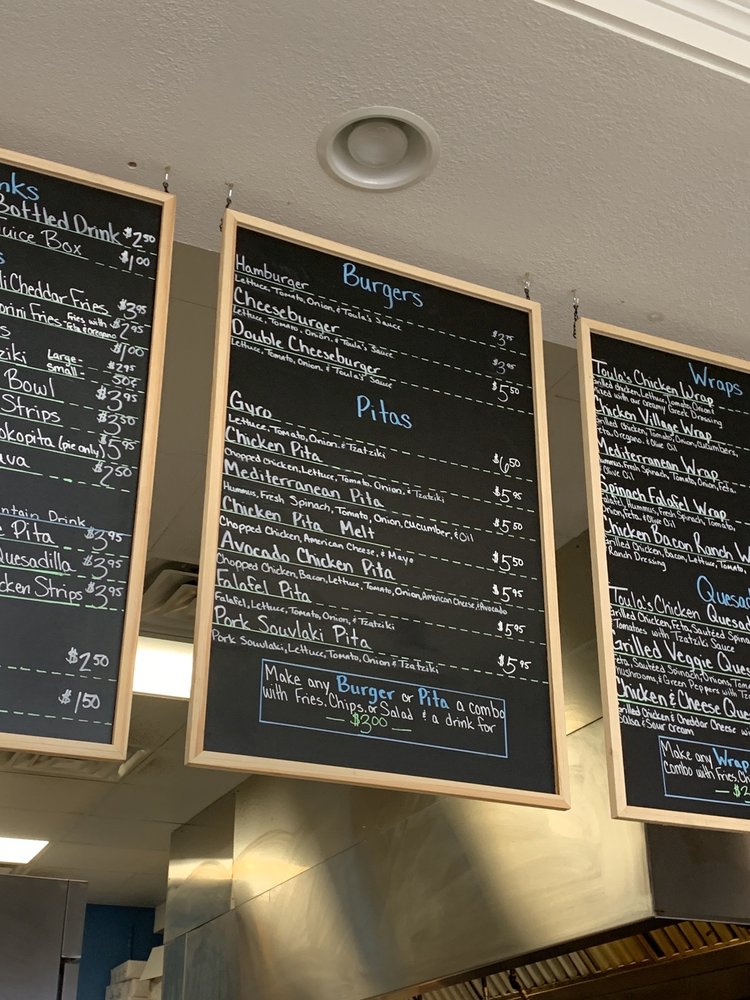 nks
Bottled Drink $2.50
Juice Box $1.00
s
Cheddar Fries $3.95
Fries Fries with Feta & Oregano $2.95
$1.00
ziki Large- $2.95
small- 50¢
Bowl $3.95
Strips $3.50
okopita (pie only) $5.95
ava $2.50
ntain Drink
Pita $3.95
Quesadilla $3.95
cken Strips $3.95
$2.50
$1.50
Burgers
Hamburger $3.75
Lettuce, Tomato, Onion, & Toula's Sauce
Cheeseburger $3.95
Lettuce, Tomato, Onion, & Toula's Sauce
Double Cheeseburger $5.50
Lettuce, Tomato, Onion, & Toula's Sauce
Pitas
Gyro $6.50
Lettuce, Tomato, Onion, & Tzatziki
Chicken Pita $5.95
Chopped Chicken, Lettuce, Tomato, Onion, & Tzatziki
Mediterranean Pita $5.50
Hummus, Fresh Spinach, Tomato, Onion, Cucumber, & Oil
Chicken Pita Melt $5.50
Chopped Chicken, American Cheese, & Mayo
Avocado Chicken Pita $5.95
Chopped Chicken, Bacon, Lettuce, Tomato, Onion, American Cheese & Avocado
Falafel Pita $5.95
Falafel, Lettuce, Tomato, Onion, & Tzatziki
Pork Souvlaki Pita $5.95
Pork Souvlaki, Lettuce, Tomato, Onion & Tzatziki
Make any Burger or Pita a combo
with Fries, Chips, or Salad & a drink for
— $3.00 —
Wraps
Toula's Chicken Wrap
Grilled chicken, Lettuce, Tomato, Onion &
Mixed with our creamy Greek Dressing
Chicken Village Wrap
Grilled Chicken, Tomato, Onion, cucumbers,
Feta, Oregano & Olive Oil
Mediterranean Wrap
Hummus, Fresh Spinach, Tomato, Onion, Feta,
& Olive Oil
Spinach Falafel Wrap
Falafel, Hummus, Fresh Spinach, Tomato,
Onion, Feta, & Olive Oil
Chicken Bacon Ranch W
Grilled Chicken, Bacon, Lettuce, Tomato,
& Ranch Dressing
Quesad
Toula's Chicken Quesad
Grilled Chicken, Feta, Sautéed Spinach
Tomatoes with Tzatziki Sauce
Grilled Veggie Que
Feta, Sautéed Spinach, Onions, Toma
Mushrooms, & Green Peppers with T
Chicken & Cheese Que
Grilled Chicken & Cheddar Cheese wi
Salsa & Sour cream
Make any Wrap
combo with Fries, Ch
— $2